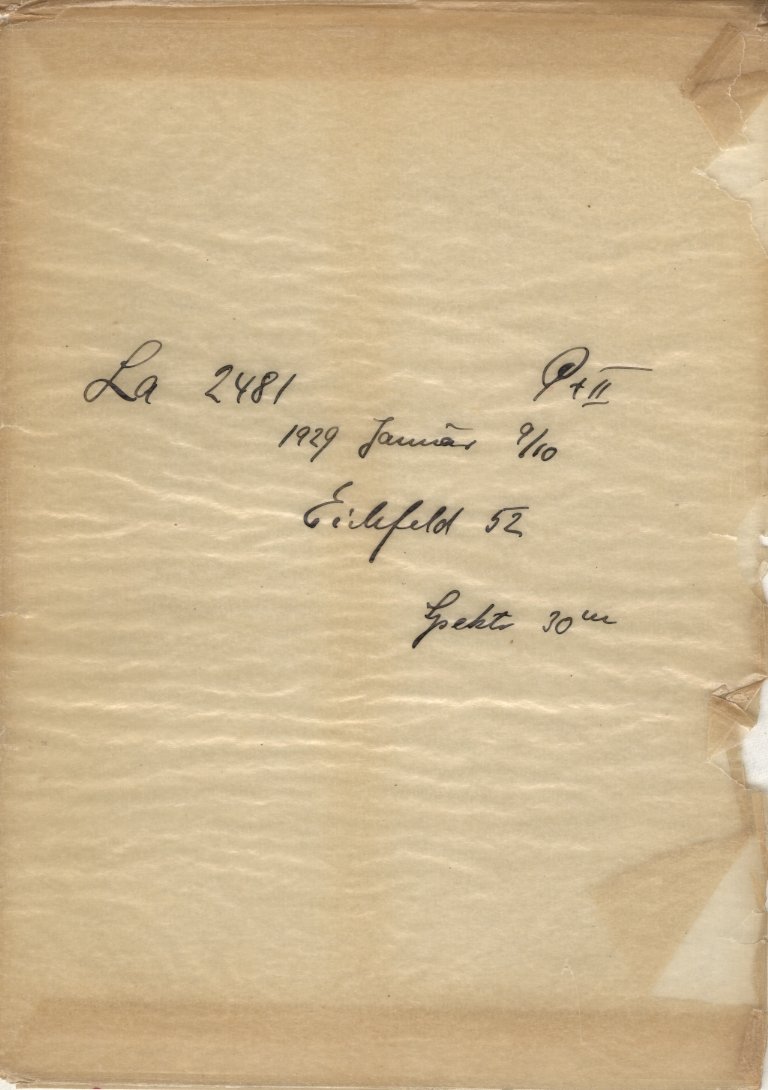 La 2481 P+II
1929 Januar 9/10
Eichfeld 52
Spektr 30m